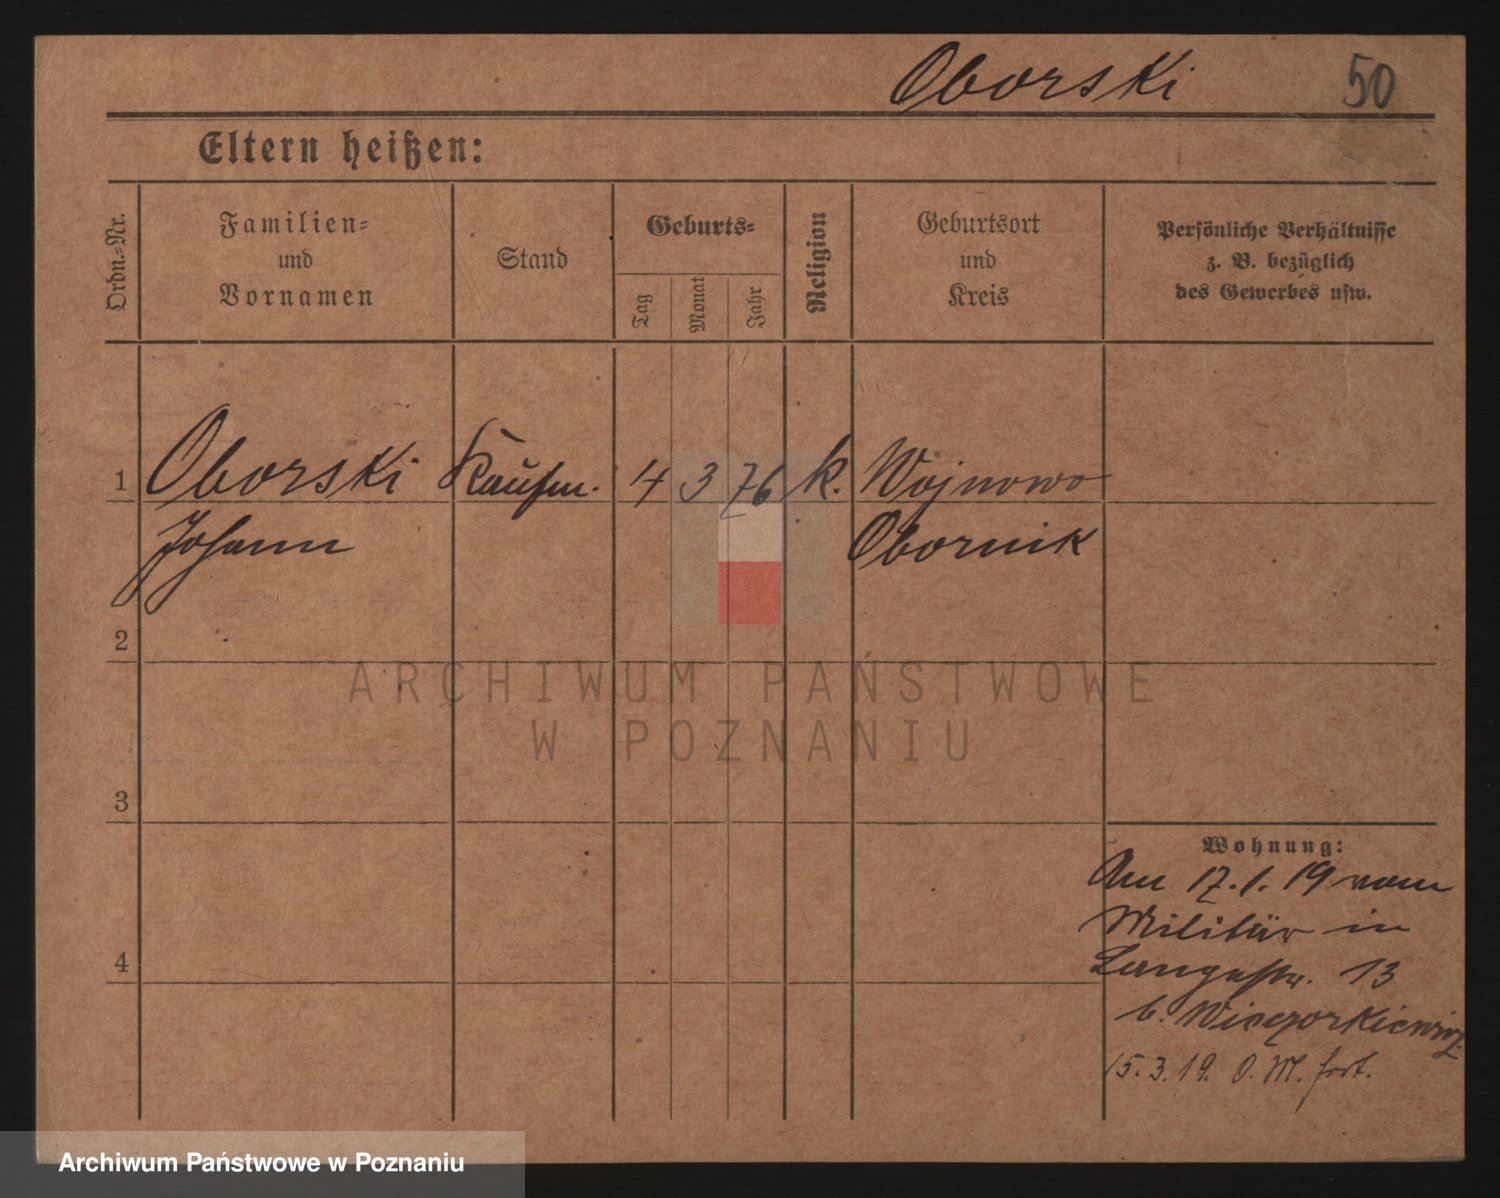 Oborski 50
Eltern heißen:
Ordn.=Nr.
Familien=
und
Vornamen
Stand
Geburts=
Tag
Monat
Jahr
Religion
Geburtsort
und
Kreis
Persönliche Verhältnisse
z. B. bezüglich
des Gewerbes usw.
1 Oborski Kaufm. 4 3 76 k. Wojnowo
Johann Obornik
2
ARCHIWUM PAŃSTWOWE
W POZNANIU
3
Wohnung:
Am 17.1.19 vom
Militär in
4 Langestr. 13
b. Wieczorkiewicz
15.3.19. O. M. fort.
Archiwum Państwowe w Poznaniu